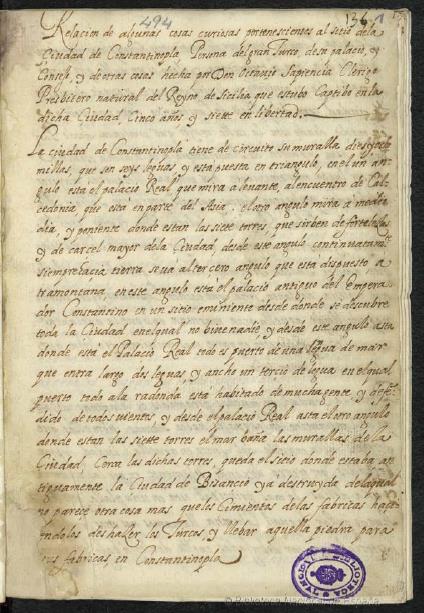 494
136
Relacion de algunas cosas curiosas pertenescientes al sitio dela
Ciudad de Constantinopla Persona del gran Turco, de su palacio, y
Consejo, y de otras cosas hecha por Don Octauio Sapiencia Clerigo
Presbitero natural del Reyno de Sicilia que estubo Captibo en la
dicha Ciudad, Cinco años y siete en libertad.
La ciudad de Constantinopla tiene de circuito su muralla dies y ocho
millas, que son seys leguas, y está puesta en triangulo, en el un an-
gulo está el palacio Real que mira a leuante, al encuentro de Cal-
cedonia, que está en parte del Asia: el otro angulo mira a medio
dia, y poniente donde estan las siete torres, que sirben de fortaleza
y de carcel mayor de la Ciudad, desde este angulo continuatam.
siempre hacia tierra se ua al tercero angulo que está dispuesto a
tramontana, en este angulo está el palacio antiguo del Empera-
dor Constantino en un sitio eminiente desde donde se descubre
toda la Ciudad en el qual no biue nadie, y desde este angulo asta
donde está el Palacio Real todo es puerto de una legua de mar
que entra largo dos leguas, y ancho un tercio de legua en el qual
puerto todo a la radonda está habitado de mucha gente, y defen-
dido de todos uientos, y desde el palacio Real asta el otro angulo
donde estan las siete torres el mar baña las murallas de la
Ciudad, Cerca las dichas torres, queda el sitio donde estaba an-
tiguamente la Ciudad de Bisancio ya destruyda de la qual
no parece otra cosa mas que los Cimientos de las fabricas hacz-
endolos deshazer los Turcos, y llebar aquella piedra para
sus fabricas en Constantinopla